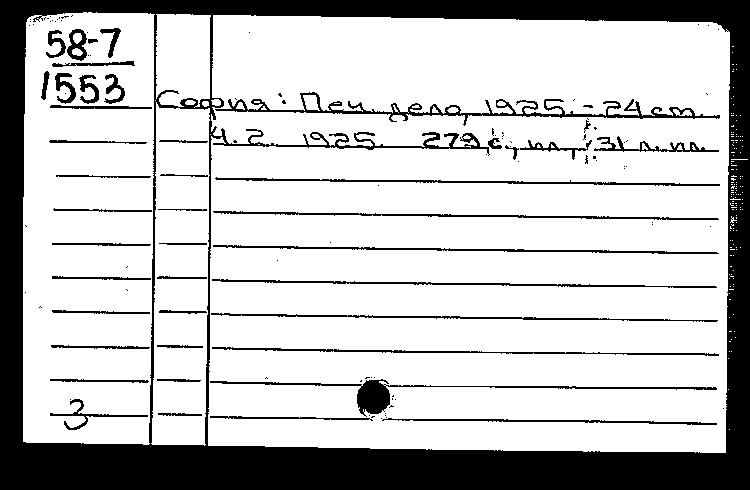 58-7
1553
София: Печ. дело, 1925. - 24 cm.
Ч. 2. 1925. 279 с., ил., 31 л. ил.
3